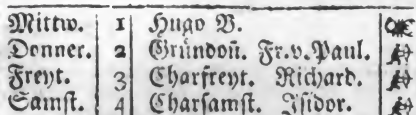 Mittw. 1 Hugo B.
Donner. 2 Gründoñ. Fr.v.Paul.
Freyt. 3 Charfreyt. Richard.
Samst. 4 Charsamst. Isidor.